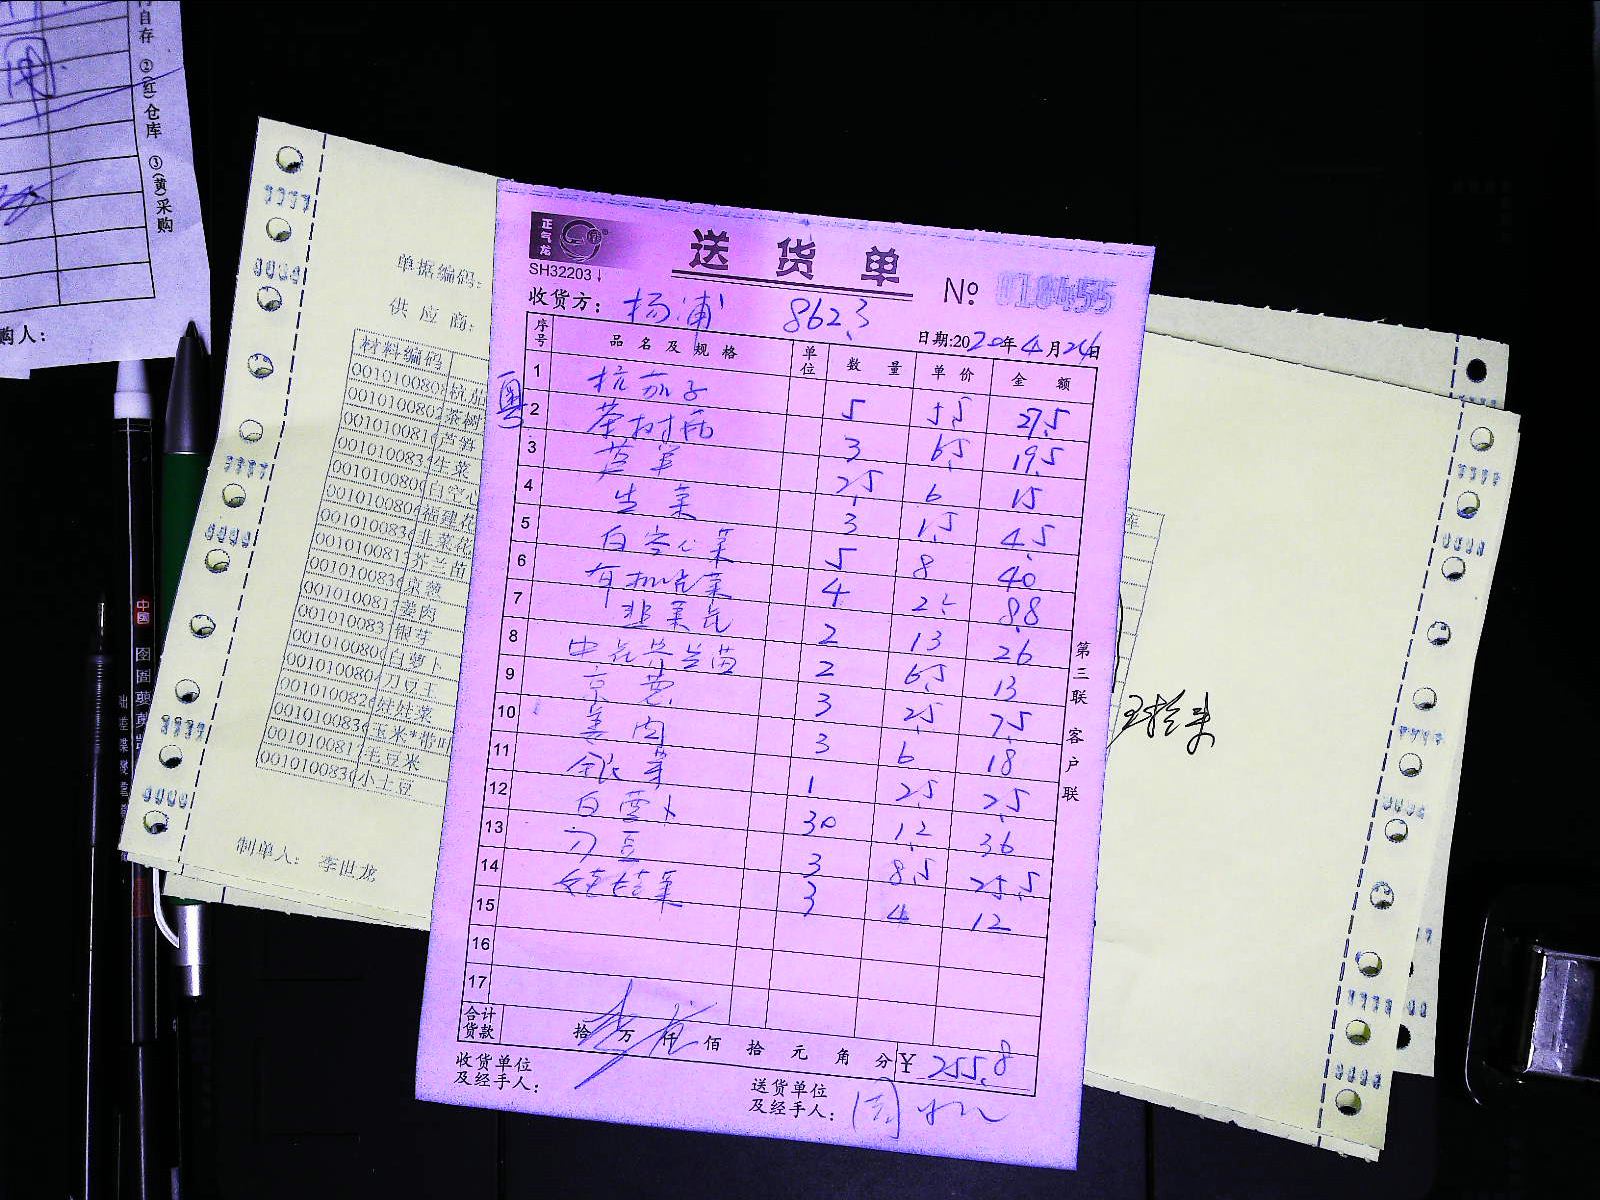 自存 ②(红)仓库 ③(黄)采购
购人:
单据编码:
供应商:
材料编码
0010100808 杭茄
0010100802 茶树
001010081 芦笋
001010083 生菜
001010080 白空心
001010080 福建花
001010083 韭菜花
001010081 芥兰苗
001010083 京葱
001010081 姜肉
001010083 银芽
001010080 白萝卜
001010080 刀豆王
001010082 娃娃菜
001010083 玉米*带叶
001010081 毛豆米
001010083 小土豆
制单人: 李世龙
中国
正气龙
SH32203
送货单
№ 018455
收货方: 杨浦 862.3
日期:2020年4月24日
序号 品名及规格 单位 数量 单价 金额
粤
1 杭茄子 5 5.5 27.5
2 茶树菇 3 6.5 19.5
3 芦笋 2.5 6 15
4 生菜 3 1.5 4.5
5 白空心菜 5 8 40
6 有机花菜 4 2.2 8.8
7 韭菜花 2 13 26
8 中花芥兰苗 2 6.5 13
9 京葱 3 2.5 7.5
10 姜肉 3 6 18
11 银芽 1 2.5 2.5
12 白萝卜 30 1.2 36
13 刀豆 3 8.5 25.5
14 娃娃菜 3 4 12
15
16
17
合计货款 拾万仟佰拾元角分 ¥ 255.8
收货单位及经手人:
送货单位及经手人:
第三联 客户联
库